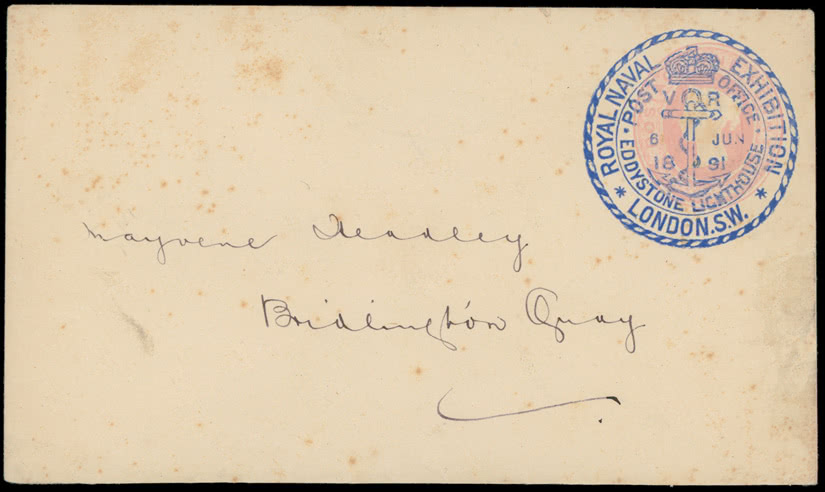 ROYAL NAVAL EXHIBITION
* LONDON.S.W. *
POST OFFICE
V R
6 JUN
18 91
EDDYSTONE LIGHTHOUSE
Headley
Bridlington Quay